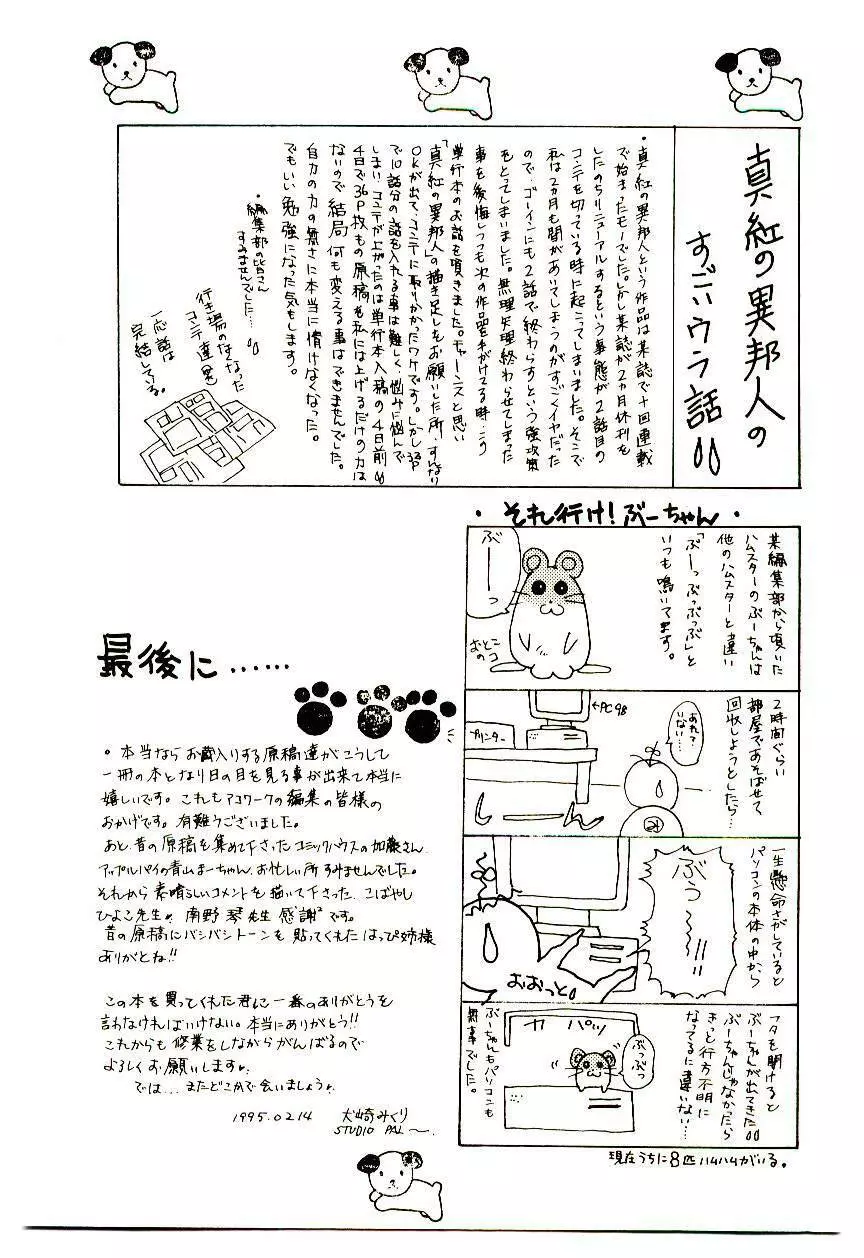 真紅の異邦人の
すごいウラ話
・真紅の異邦人という作品は某誌で十回連載
で始まったモノでした。しかし某誌が2ヵ月休刊を
したのちリニューアルするという事態が2話目の
コンテを切っている時に起こってしまいました。そこで
私は2ヵ月も間があいてしまうのがすごくイヤだった
ので、ゴーインにも2話で終わらすという強攻策
をとってしまいました。無理矢理終わらせてしまった
事を後悔しつつも次の作品を手がけてる時、この
単行本のお話を頂きました。チャーンスと思い
「真紅の異邦人」の描き足しをお願いした所、すんなり
OKが出て、コンテに取りかかったワケです。しかし33P
で10話分の話を入れる事は難しく、悩みに悩んで
しまい、コンテが上がったのは単行本入稿の4日前
4日で36P枚もの原稿を私には上げるだけの力は
ないので結局何も変える事はできませんでした。
自分の力の無さに本当に情けなくなった。
でもいい勉強になった気もします。
・編集部の皆さん
すみませんでした…
行き場のなくなった
コンテ達
一応話は
完結している。
・それ行け!ぶーちゃん・
某編集部から頂いた
ハムスターのぶーちゃんは
他のハムスターと違い
「ぶーっぶっぶっぶ」と
いつも鳴いてます。
ぶーっ
おとこ
のコ
2時間ぐらい
部屋であそばせて
回収しようとしたら…
←PC98
プリンター
あれ?
いない…
しーん
一生懸命さがしていると
パソコンの本体の中から
ぶぅ〜〜!!
おおっと
フタを開けると
ぶーちゃんが出てきた
ぶーちゃんじゃなかったら
きっと行方不明に
なってるに違いない…
カパッ
ぶっぶっ
ぶーちゃんもパソコンも
無事でした。
現在うちに8匹ハムハムがいる。
最後に……
・本当ならお蔵入りする原稿達がこうして
一冊の本となり日の目を見る事が出来て本当に
嬉しいです。これもアコワークの編集の皆様の
おかげです。有難うございました。
あと、昔の原稿を集めて下さったコミックハウスの加藤さん
アップルパイの青山まーちゃん、お忙しい所すみませんでした。
それから素晴らしいコメントを描いて下さった、こばやし
ひよこ先生♥、南野琴先生感謝²です。
昔の原稿にバシバシトーンを貼ってくれたはっぴ姉様
ありがとね!!
この本を買ってくれた君に一番のありがとうを
言わなければいけない。本当にありがとう!!
これからも修業をしながらがんばるので
よろしくお願いします♥
では…またどこかで会いましょう♥
1995.02.14 犬崎みくり
STUDIO PAL〜